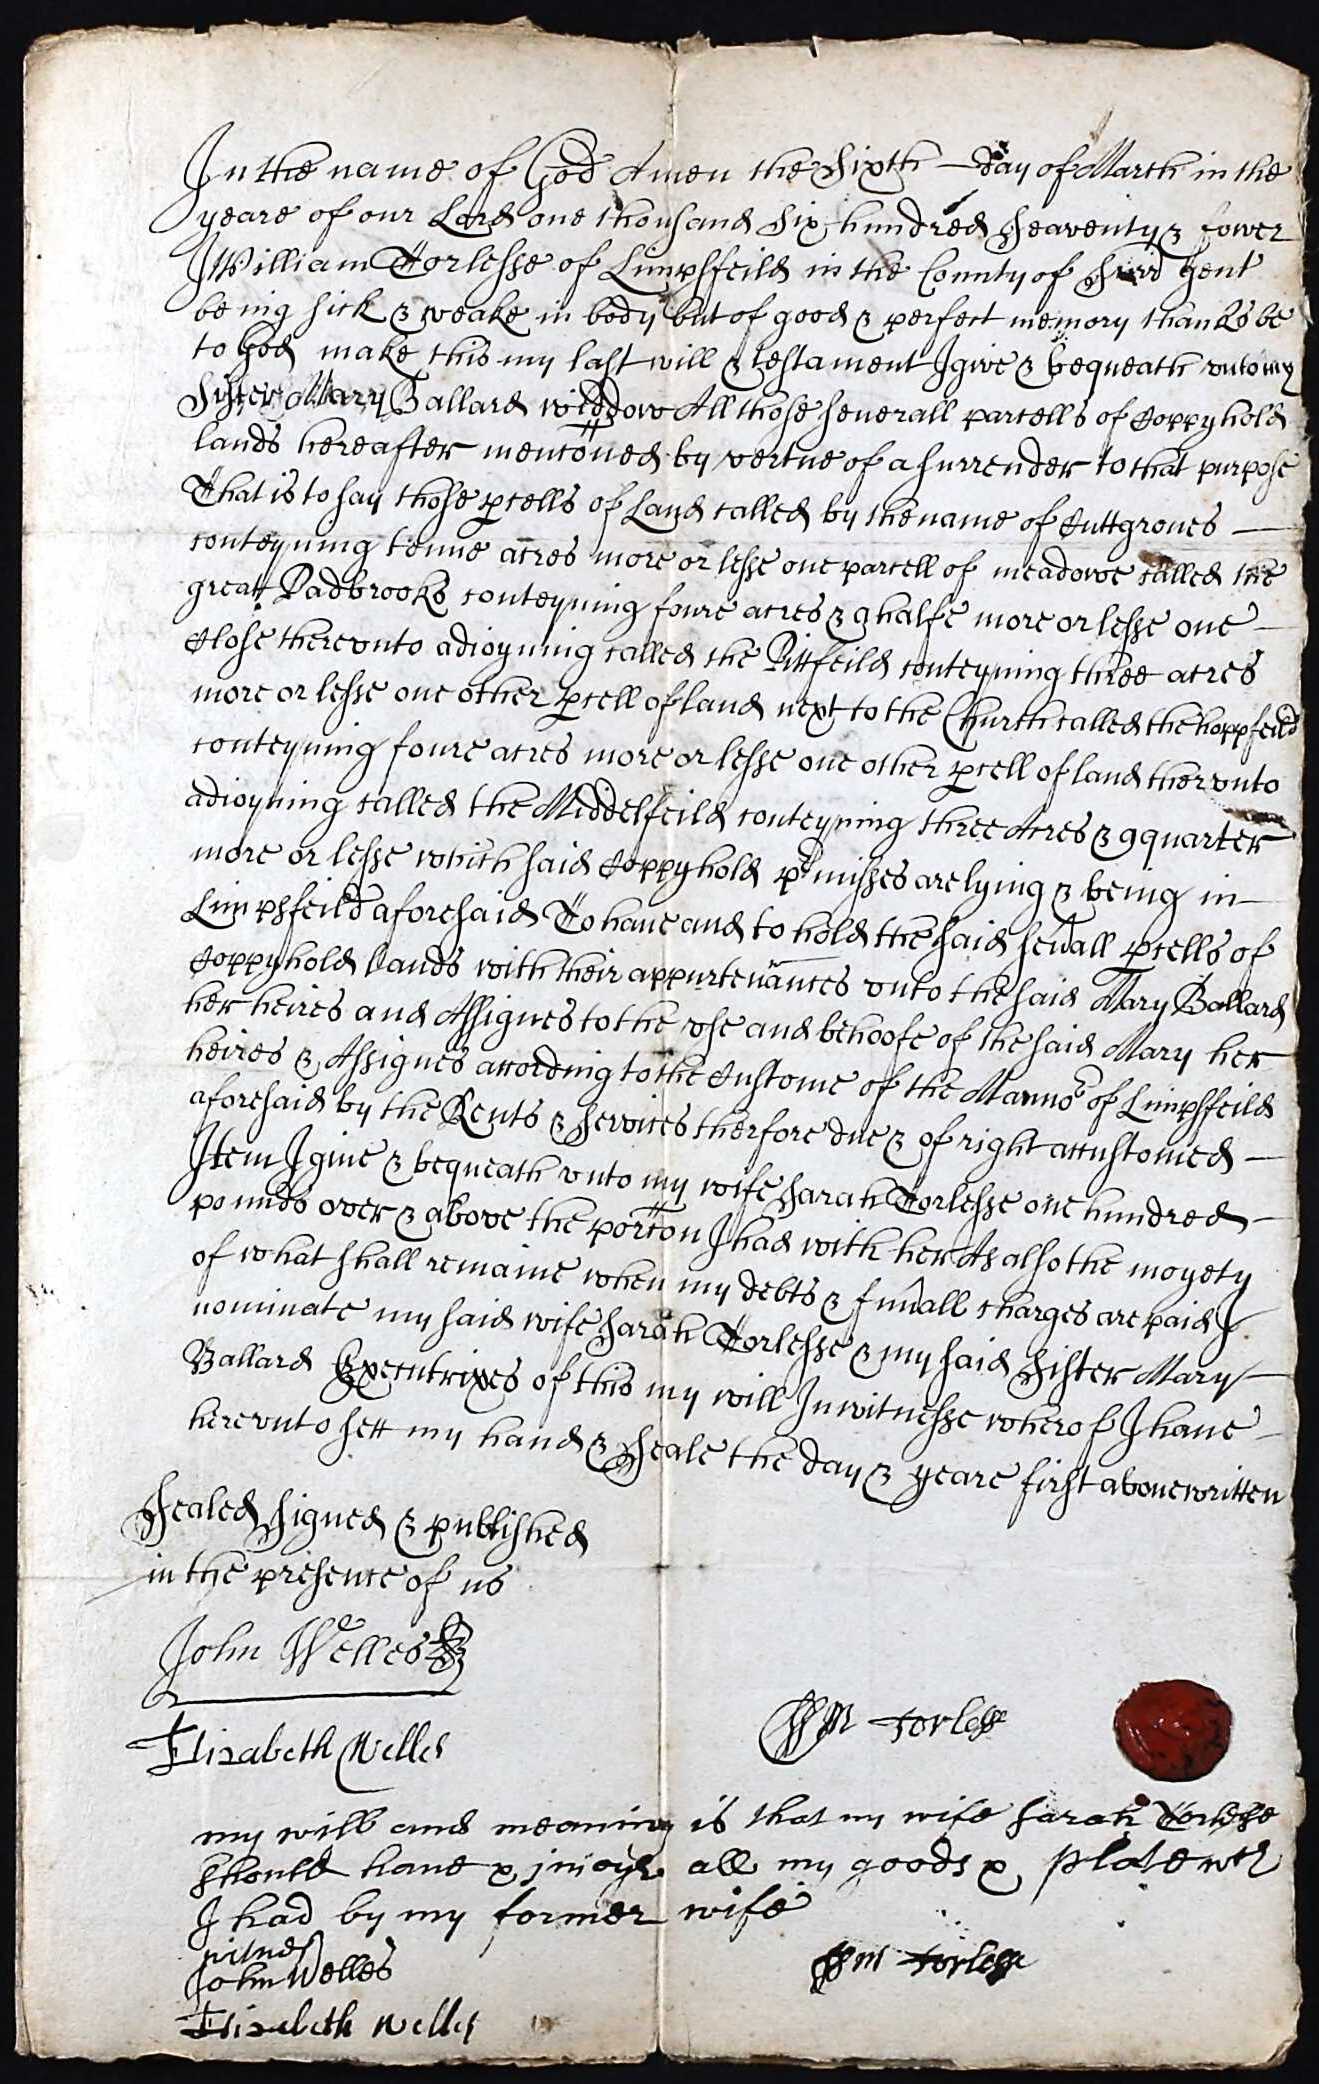 In the name of God Amen the Sixth — day of March in the
yeare of our Lord one thousand six hundred Seaventy & fower
I William Torlesse of Limpsfeild in the County of Surr gent
being sick & weake in body but of good & perfect memory thanks be
to God make this my last will & testament I give & bequeath unto my
Sister Mary Ballard widdow All those severall parcells of Coppyhold
lands hereafter mencõned by vertue of a surrender to that purpose
That is to say those pcells of Land called by the name of Cuttgroves —
conteyning tenne acres more or lesse one parcell of meadowe called the
great Padbrooks conteyning foure acres & a halfe more or lesse one —
Close therevnto adioyning called the Pittfeild conteyning three acres
more or lesse one other pcell of land next to the Church called the hoppfeild
conteyning foure acres more or lesse one other pcell of land thervnto
adioyning called the Middelfeild conteyning three Acres & a quarter
more or lesse which said Coppyhold pmisses are lying & being in —
Limpsfeild aforesaid To have and to hold the said sevall pcells of
Coppyhold lands with their appurtenances vnto the said Mary Ballard
her heires and Assignes to the vse and behoofe of the said Mary her
heires & Assignes according to the Custome of the Manno^r of Limpsfeild
aforesaid by the Rents & services therfore due & of right accustomed —
Item I give & bequeath vnto my wife Sarah Torlesse one hundred —
pounds over & above the porcõn I had with her As also the moyety
of what shall remaine when my debts & funall charges are paid I
nominate my said wife Sarah Torlesse & my said Sister Mary —
Ballard Executrixes of this my will In witnesse wherof I have —
herevnto sett my hand & Seale the day & yeare first above written
Sealed Signed & published
in the presence of us
John Welles
Elizabeth Welles
Wm Torlesse
my will and meaning is that my wife Sarah Torlesse
should have & injoye all my goods & plate wch
I had by my former wife
witnes
John Welles
Wm Torlesse
Elizabeth Welles